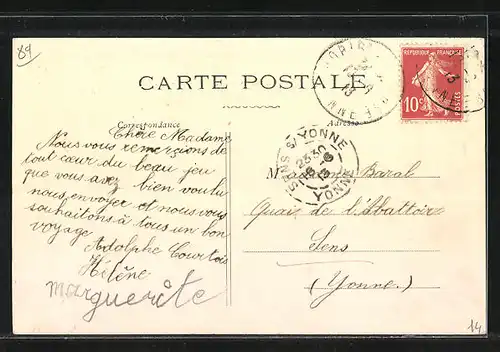 89
CARTE POSTALE
RÉPUBLIQUE FRANÇAISE
10c
POSTES
Correspondance
Adresse
Chère Madame
Nous vous remerçions de
tout cœur du beau jeu
que vous avez bien voulu
nous envoyer et nous vous
souhaitons à tous un bon
voyage
Adolphe Courtois
Hélène
marguerite
SENS YONNE
23 30
YONNE
M Baral
Quai de l'Abattoir
Sens
(Yonne.)
14